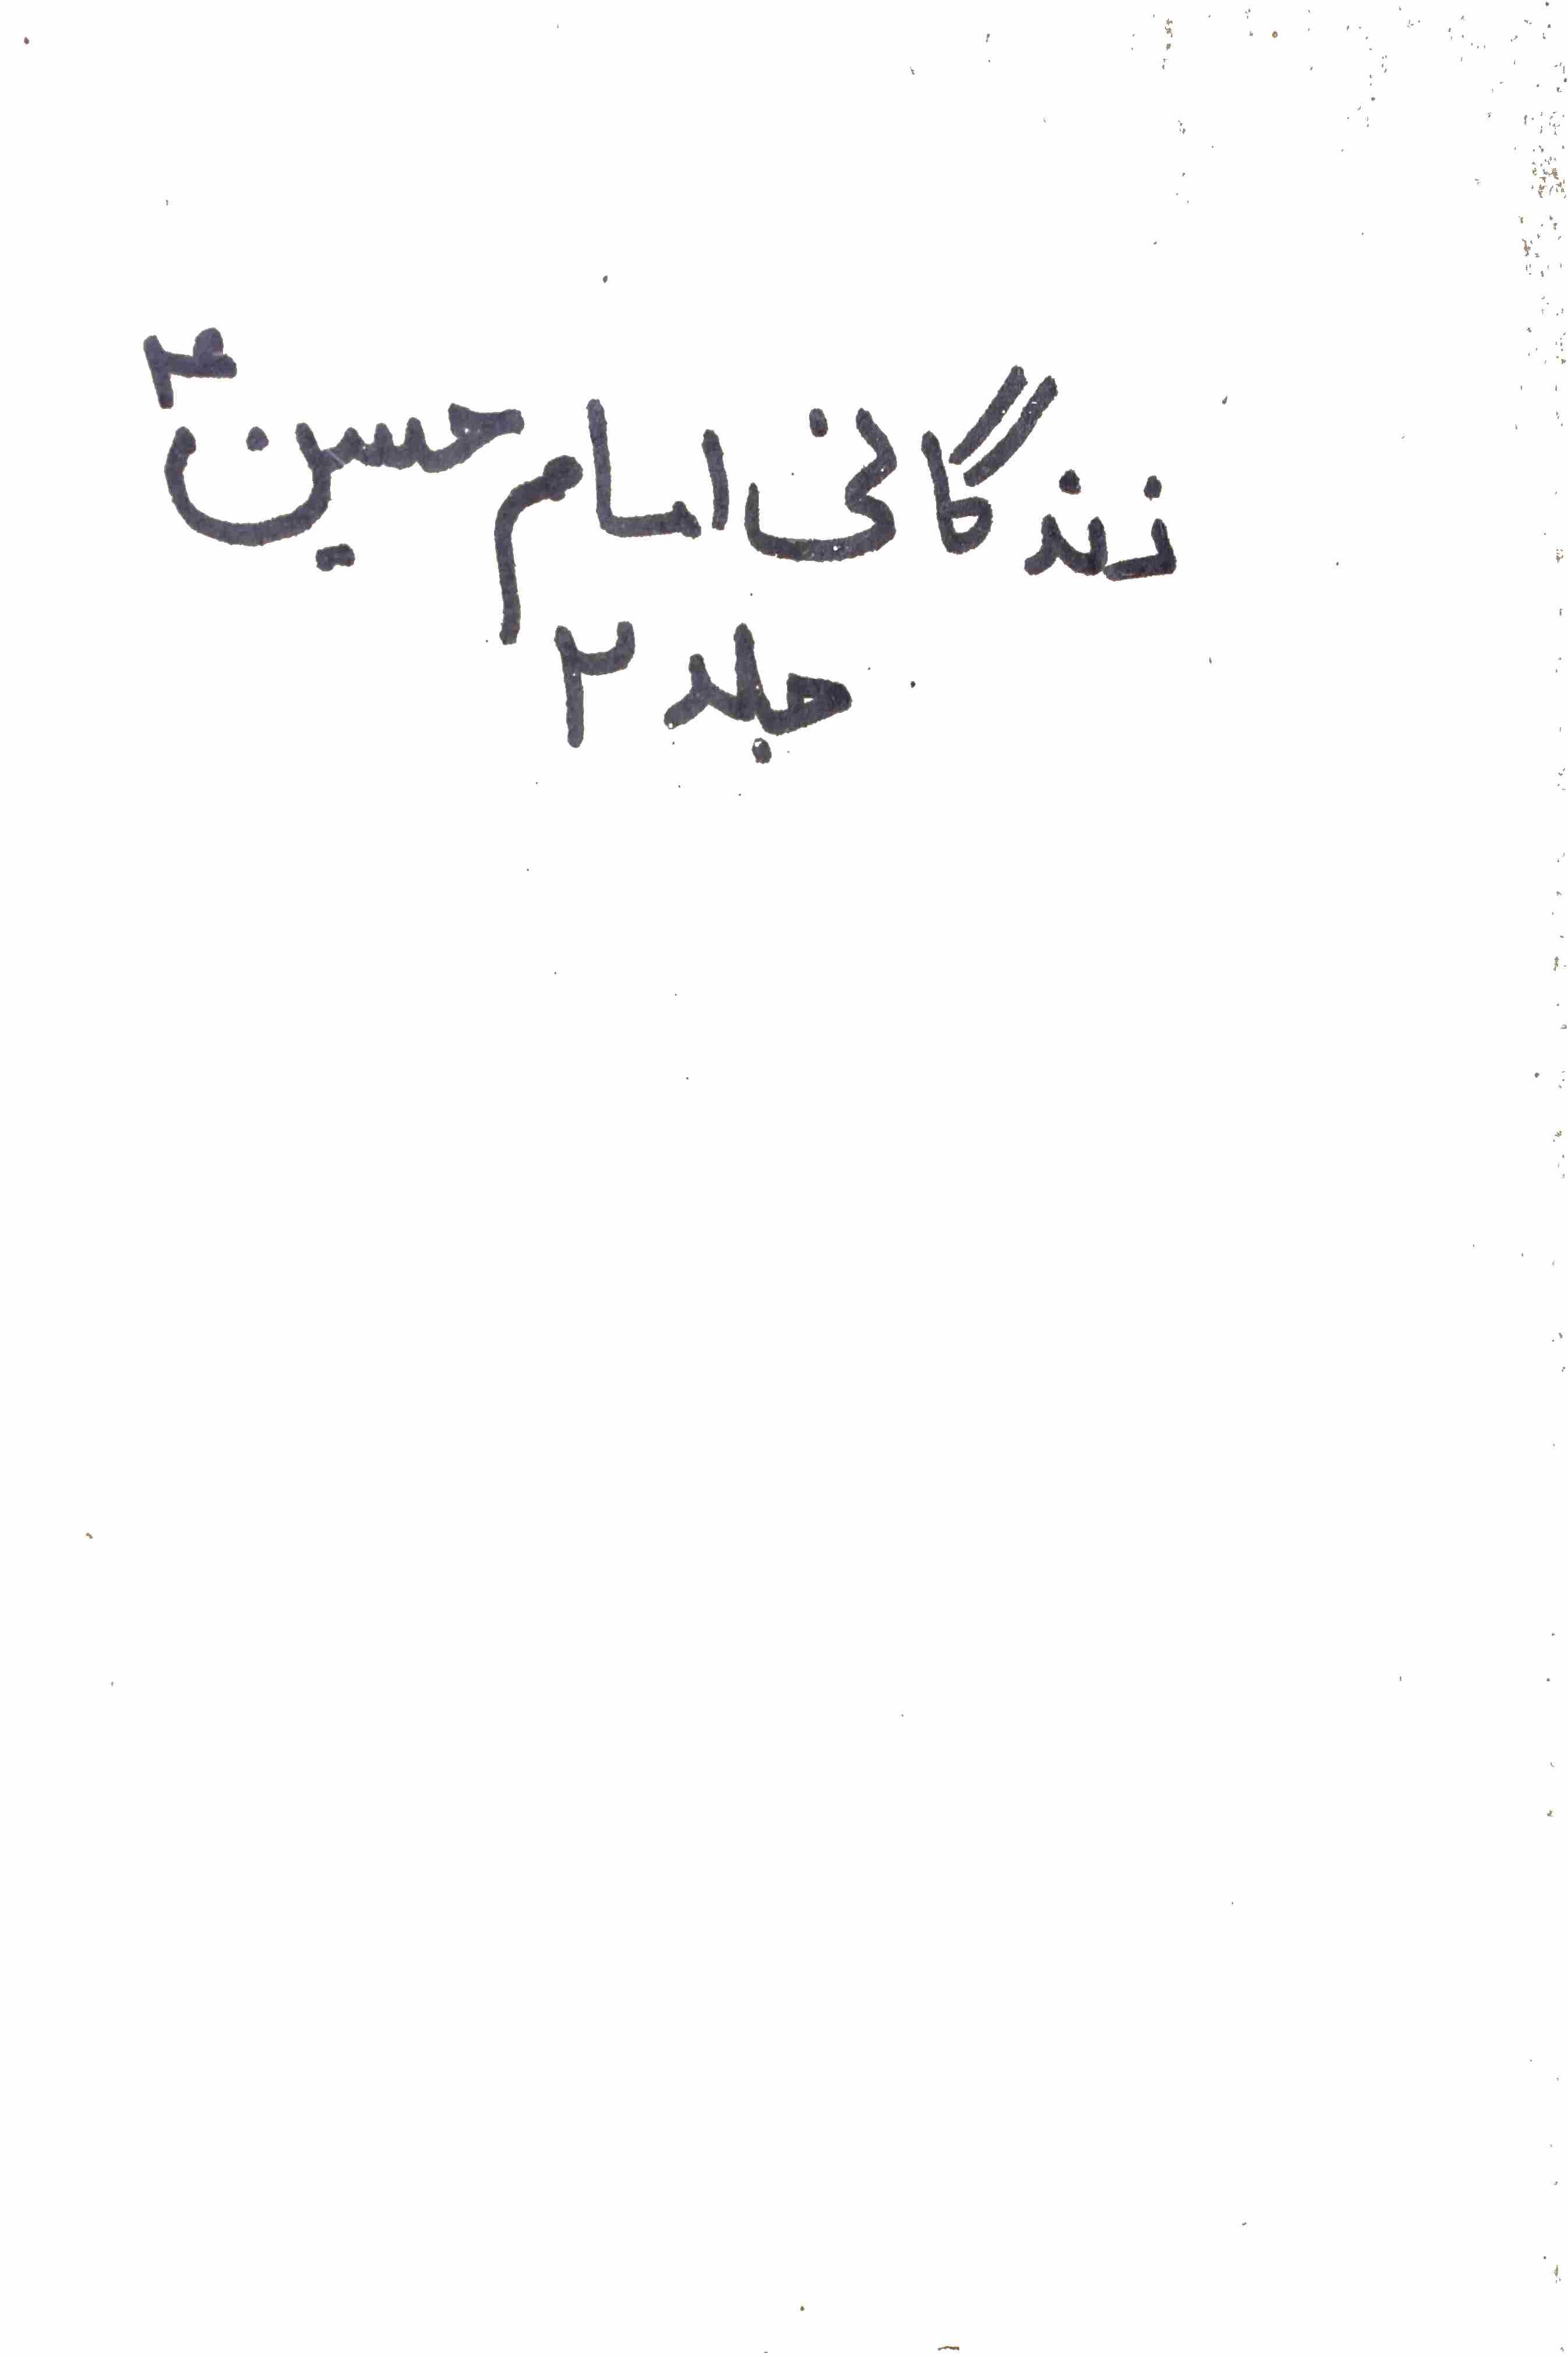 زندگانی امام حسین ؑ
جلد ۲